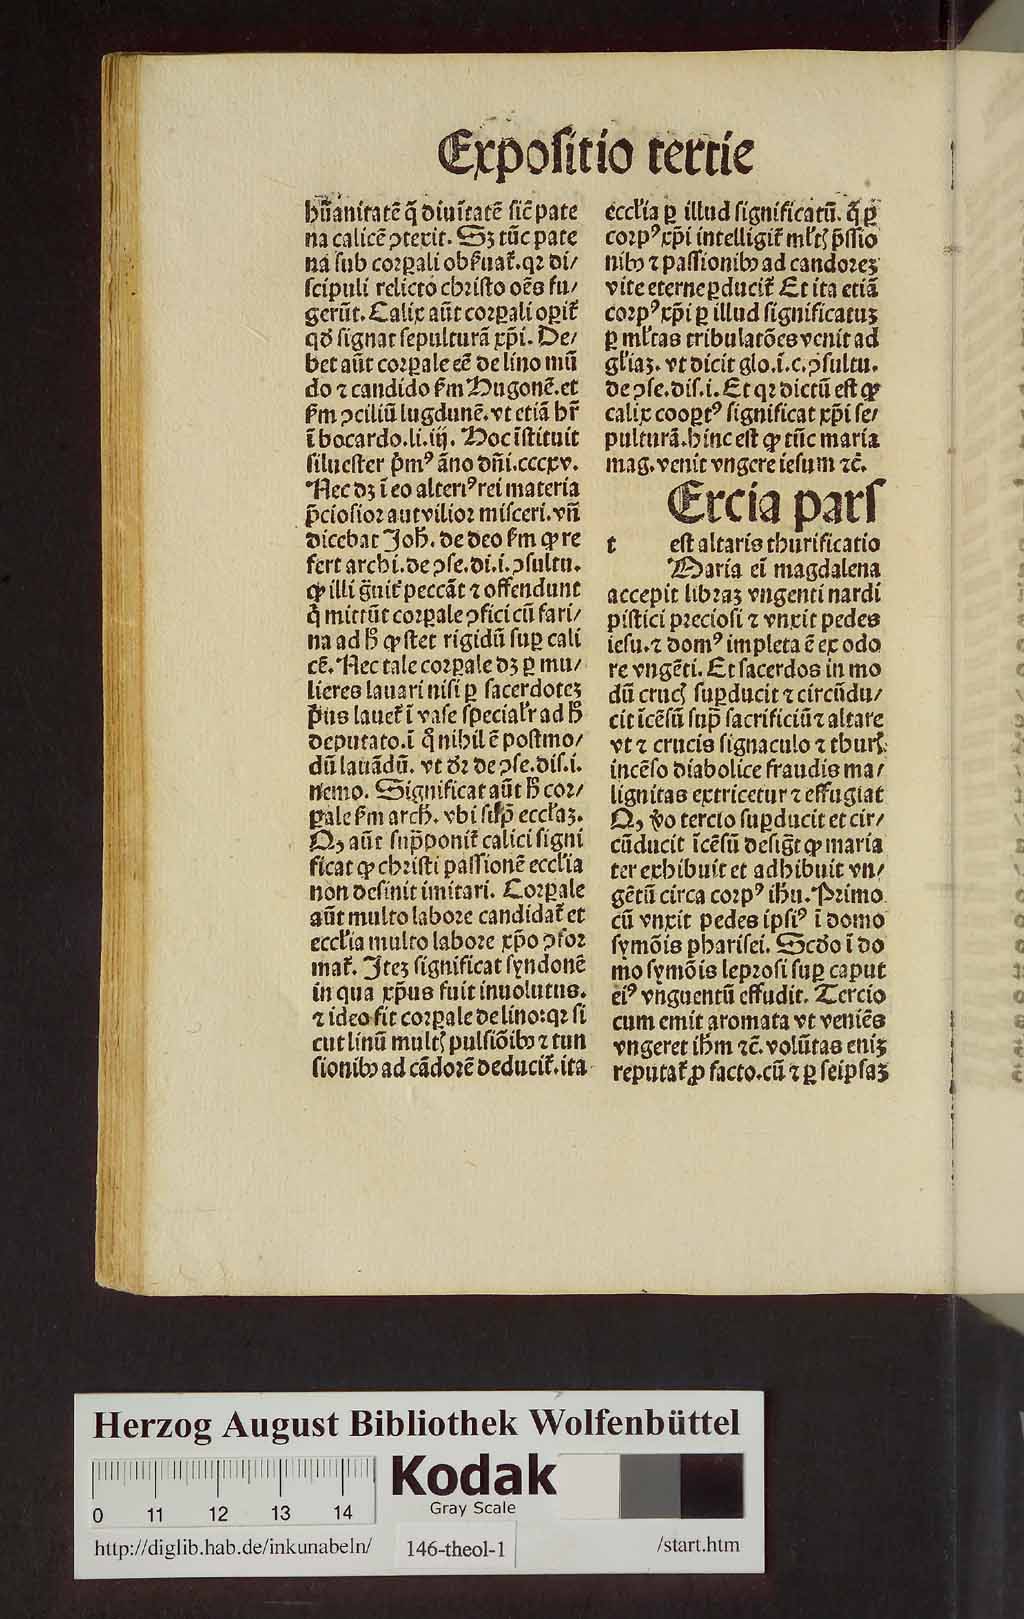 Expositio tertie
hũanitatẽ q̃ diuĩtatẽ sic̃ pate
na calicẽ ꝯtexit. Sꝫ tũc pate
na sub corꝑali obẜuat᷒. qꝛ di/
scipuli relicto christo oẽs fu/
gerũt. Calix aũt corꝑali oꝑit᷒
qđ signat sepulturã xp̃i. De/
bet aũt corꝑale eẽ de lino mũ
do ⁊ candido ẜm Hugonẽ. et
ẜm ꝯciliũ lugdunẽ. vt etiã hr̃
ĩ bocardo. li. iij. Hoc ĩstituit
siluester p̃mꝰ ãno dñi. cccxv.
Nec dꝫ ĩ eo alteriꝰ rei materia
p̃ciosior aut vilior misceri. vñ
dicebat Joh̃. de deo ẜm ꝙ re
fert archi. de ꝯse. di. i. ꝯsultu.
ꝙ illi g̃nit᷒ peccãt ⁊ offendunt
q̇ mittũt corꝑale ꝯfici cũ fari/
na ad h̃ ꝙ stet rigidũ suꝑ cali
cẽ. Nec tale corꝑale dꝫ ꝑ mu/
lieres lauari nisi ꝑ sacerdoteꝫ
p̃us lauet᷒ ĩ vase special̾r ad h̃
deputato. ĩ q̊ nihil ẽ postmo/
dũ lauãdũ. vt dꝛ de ꝯse. dis. i.
nemo. Significat aũt h̃ cor/
ꝑale ẜm arch̃. vbi sup̃ eccl̾aꝫ.
Qꝫ aũt sup̃ponit᷒ calici signi
ficat ꝙ christi passionẽ eccl̾ia
non desinit imitari. Corꝑale
aũt multo labore candidat᷒ et
eccl̾ia multo labore xp̃o ꝯfor
mat᷒. Iteꝫ significat syndonẽ
in qua xp̃us fuit inuolutus.
⁊ ideo fit corꝑale de lino: qꝛ si
cut linũ multꝭ pulsiõibꝰ ⁊ tun
sionibꝰ ad cãdorẽ deducit᷒. ita
eccl̾ia ꝑ illud significatũ. q̃ ꝑ
corpꝰ xp̃i intelligit᷒ ml̾tꝭ p̃ssio
nibꝰ ⁊ passionibꝰ ad candoreꝫ
vite eterne ꝑducit᷒ Et ita etiã
corpꝰ xp̃i ꝑ illud significatuꝫ
ꝑ ml̾tas tribulatões venit ad
gl̾iaꝫ. vt dicit glo. ĩ. c. ꝯsultu.
de ꝯse. dis. i. Et qꝛ dictũ est ꝙ
calix cooꝑtꝰ significat xp̃i se/
pulturã. hinc est ꝙ tũc maria
mag. venit vngere iesum ⁊c̃.
Ercia pars
t est altaris thurificatio
Maria ei᷒ magdalena
accepit libraꝫ vngenti nardi
pistici preciosi ⁊ vnxit pedes
iesu. ⁊ domꝰ impleta ẽ ex odo
re vngẽti. Et sacerdos in mo
dũ crucꝭ suꝑducit ⁊ circũdu/
cit ĩcẽsũ sup̃ sacrificiũ ⁊ altare
vt ⁊ crucis signaculo ⁊ thurꝭ
incẽso diabolice fraudis ma/
lignitas extricetur ⁊ effugiat
Qꝫ v̾o tercio suꝑducit et cir/
cũducit ĩcẽsũ desigt᷒ ꝙ maria
ter exhibuit et adhibuit vn/
gẽtũ circa corpꝰ ih̃u. Primo
cũ vnxit pedes ipsiꝰ ĩ domo
symõis pharisei. Scđo ĩ do
mo symõis leprosi suꝑ caput
eiꝰ vnguentũ effudit. Tercio
cum emit aromata vt veniẽs
vngeret ih̃m ⁊c̃. volũtas eniꝫ
reputat᷒ ꝓ facto. cũ ⁊ ꝑ seipsaꝫ
Herzog August Bibliothek Wolfenbüttel
0 11 12 13 14
Kodak
Gray Scale
http://diglib.hab.de/inkunabeln/ 146-theol-1 /start.htm